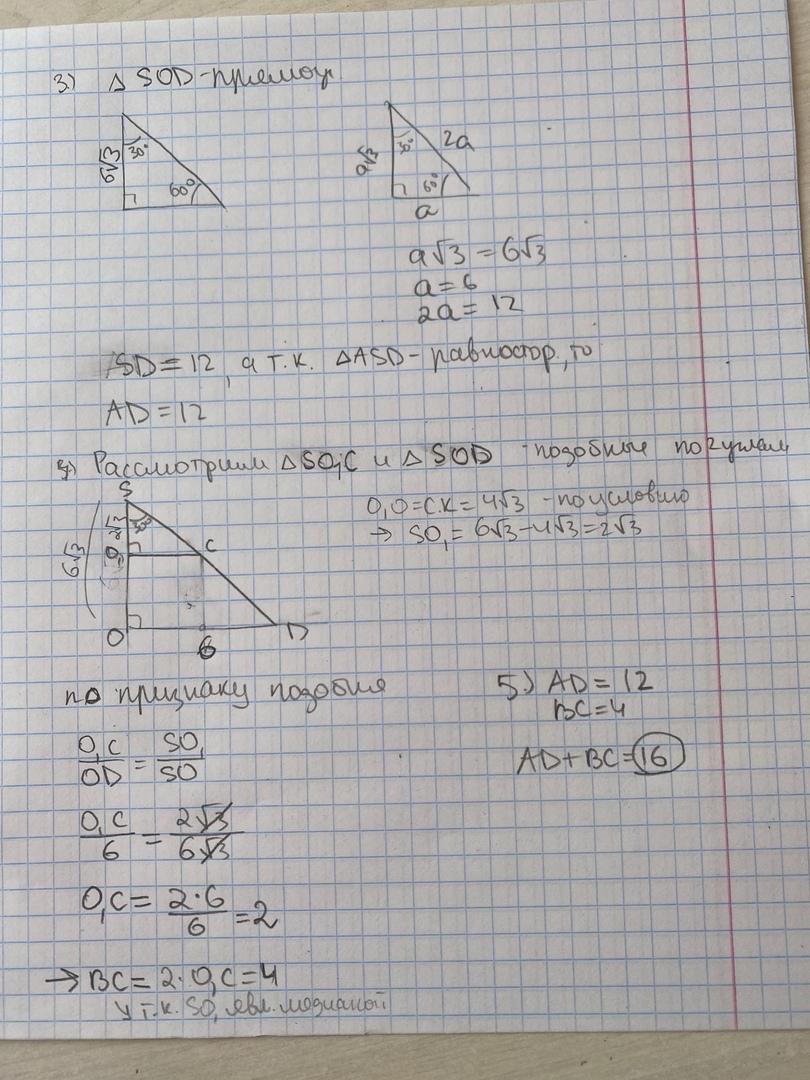 3.) △ SOD - прямоуг.
6√3 30° 60°
a√3 30° 2a 60° a
a√3 = 6√3
a = 6
2a = 12
SD = 12, а т.к. △ASD - равностор., то
AD = 12
4) Рассмотрим △SO₁C и △SOD - подобные по 2 углам
S 6√3 2√3 30° O₁ C O D
O₁O = CK = 4√3 - по условию
→ SO₁ = 6√3 - 4√3 = 2√3
по признаку подобия
O₁C/OD = SO₁/SO
O₁C/6 = 2√3/6√3
O₁C = 2·6/6 = 2
→ BC = 2·O₁C = 4
т.к. SO₁ явл. медианой
5.) AD = 12
BC = 4
AD + BC = 16